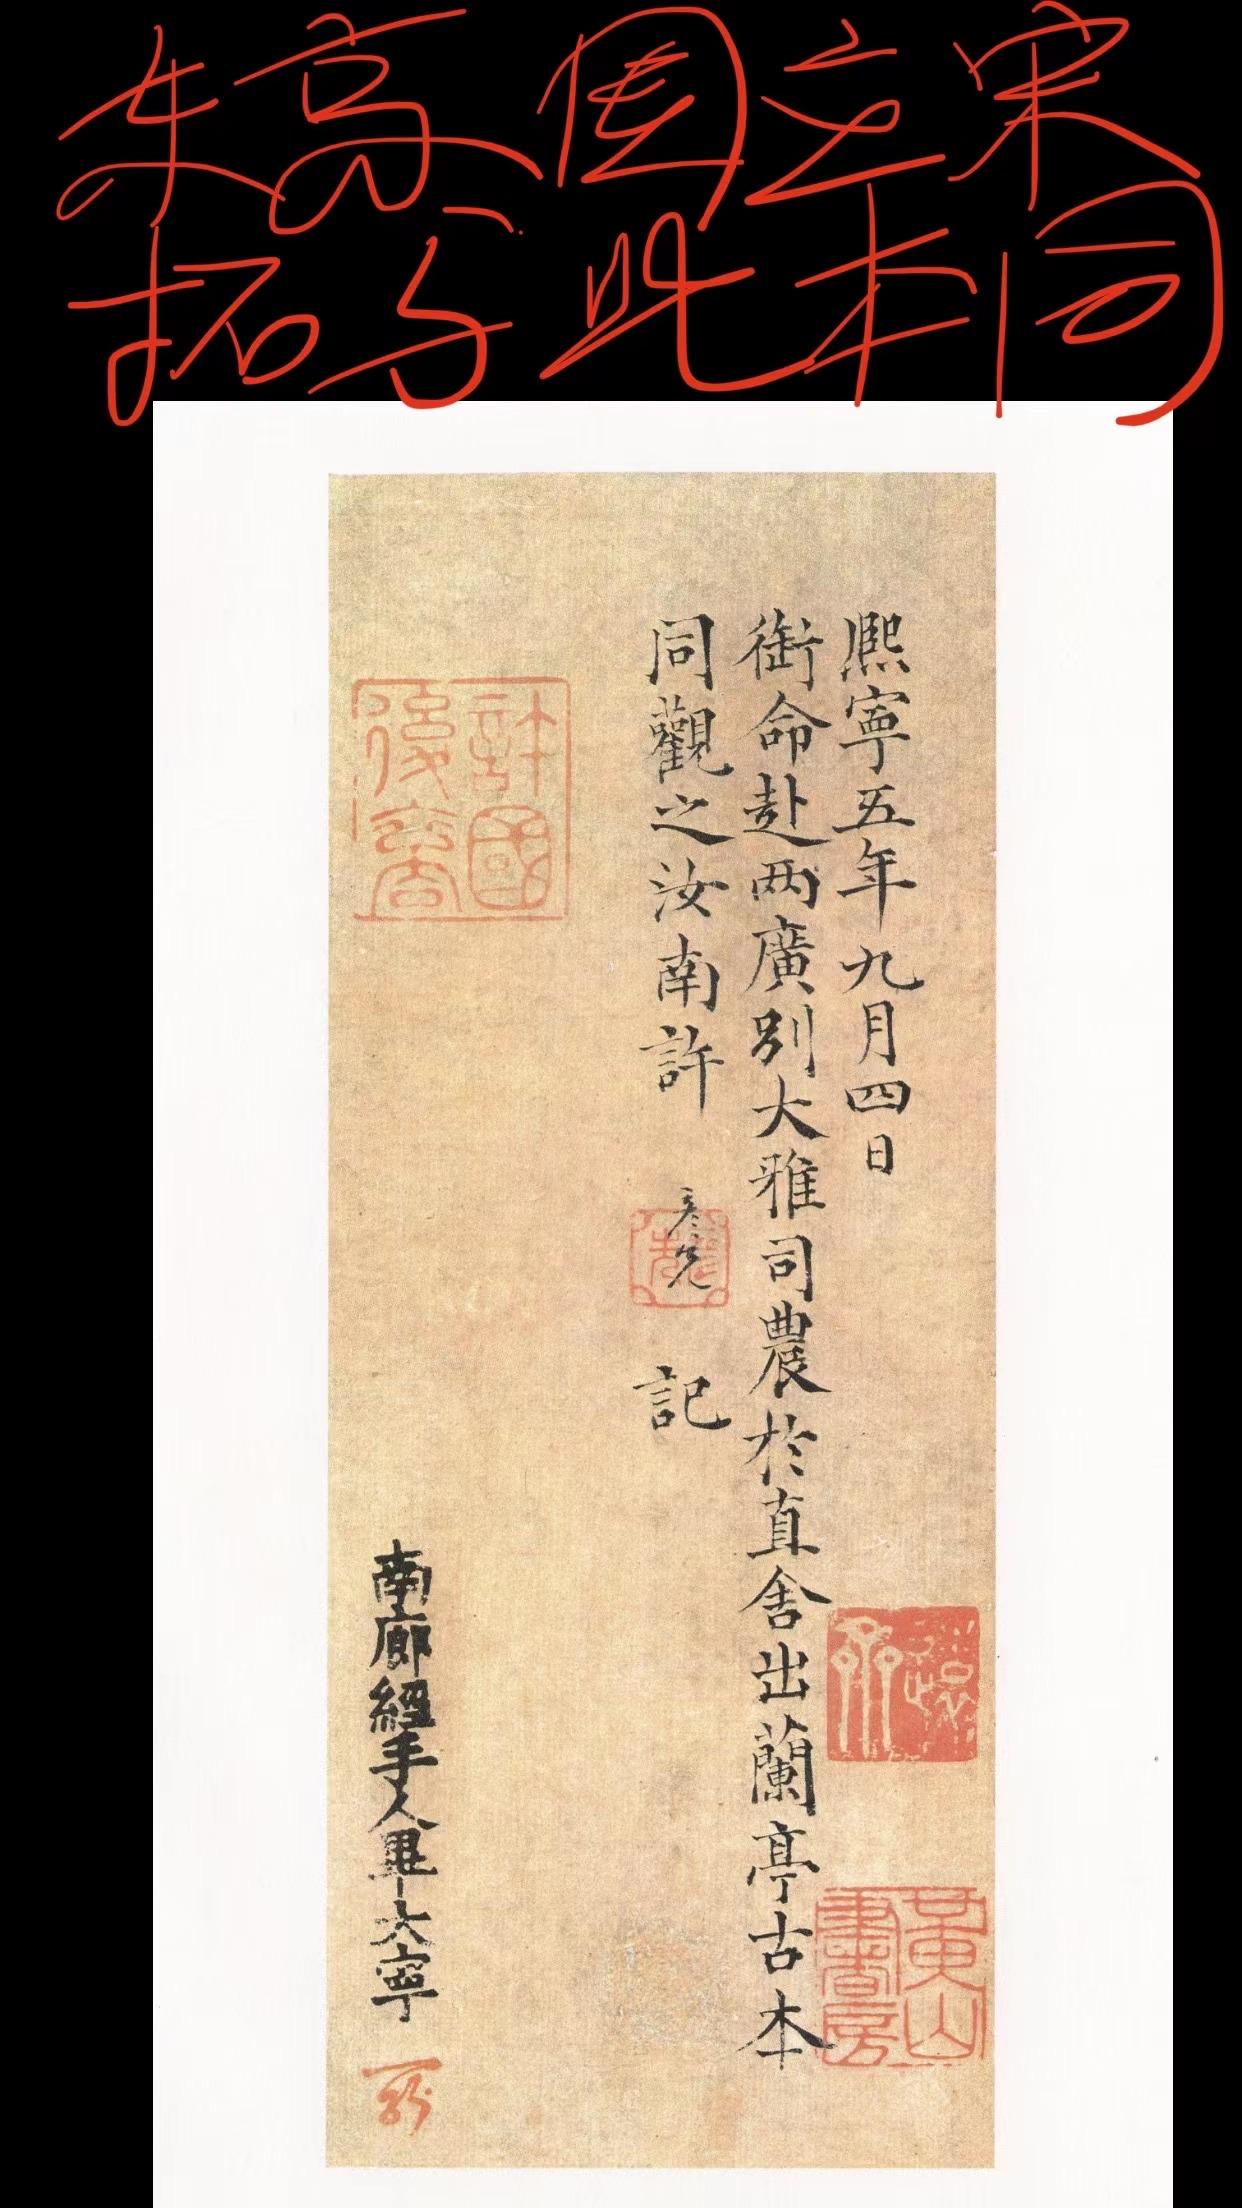 东京国立宋
拓与此本同
熙寧五年九月四日
銜命赴两廣别大雅司農於直舍出蘭亭古本
同觀之汝南許
彥先
記
許國後裔
黃山書房
南廊經手人畢大寧